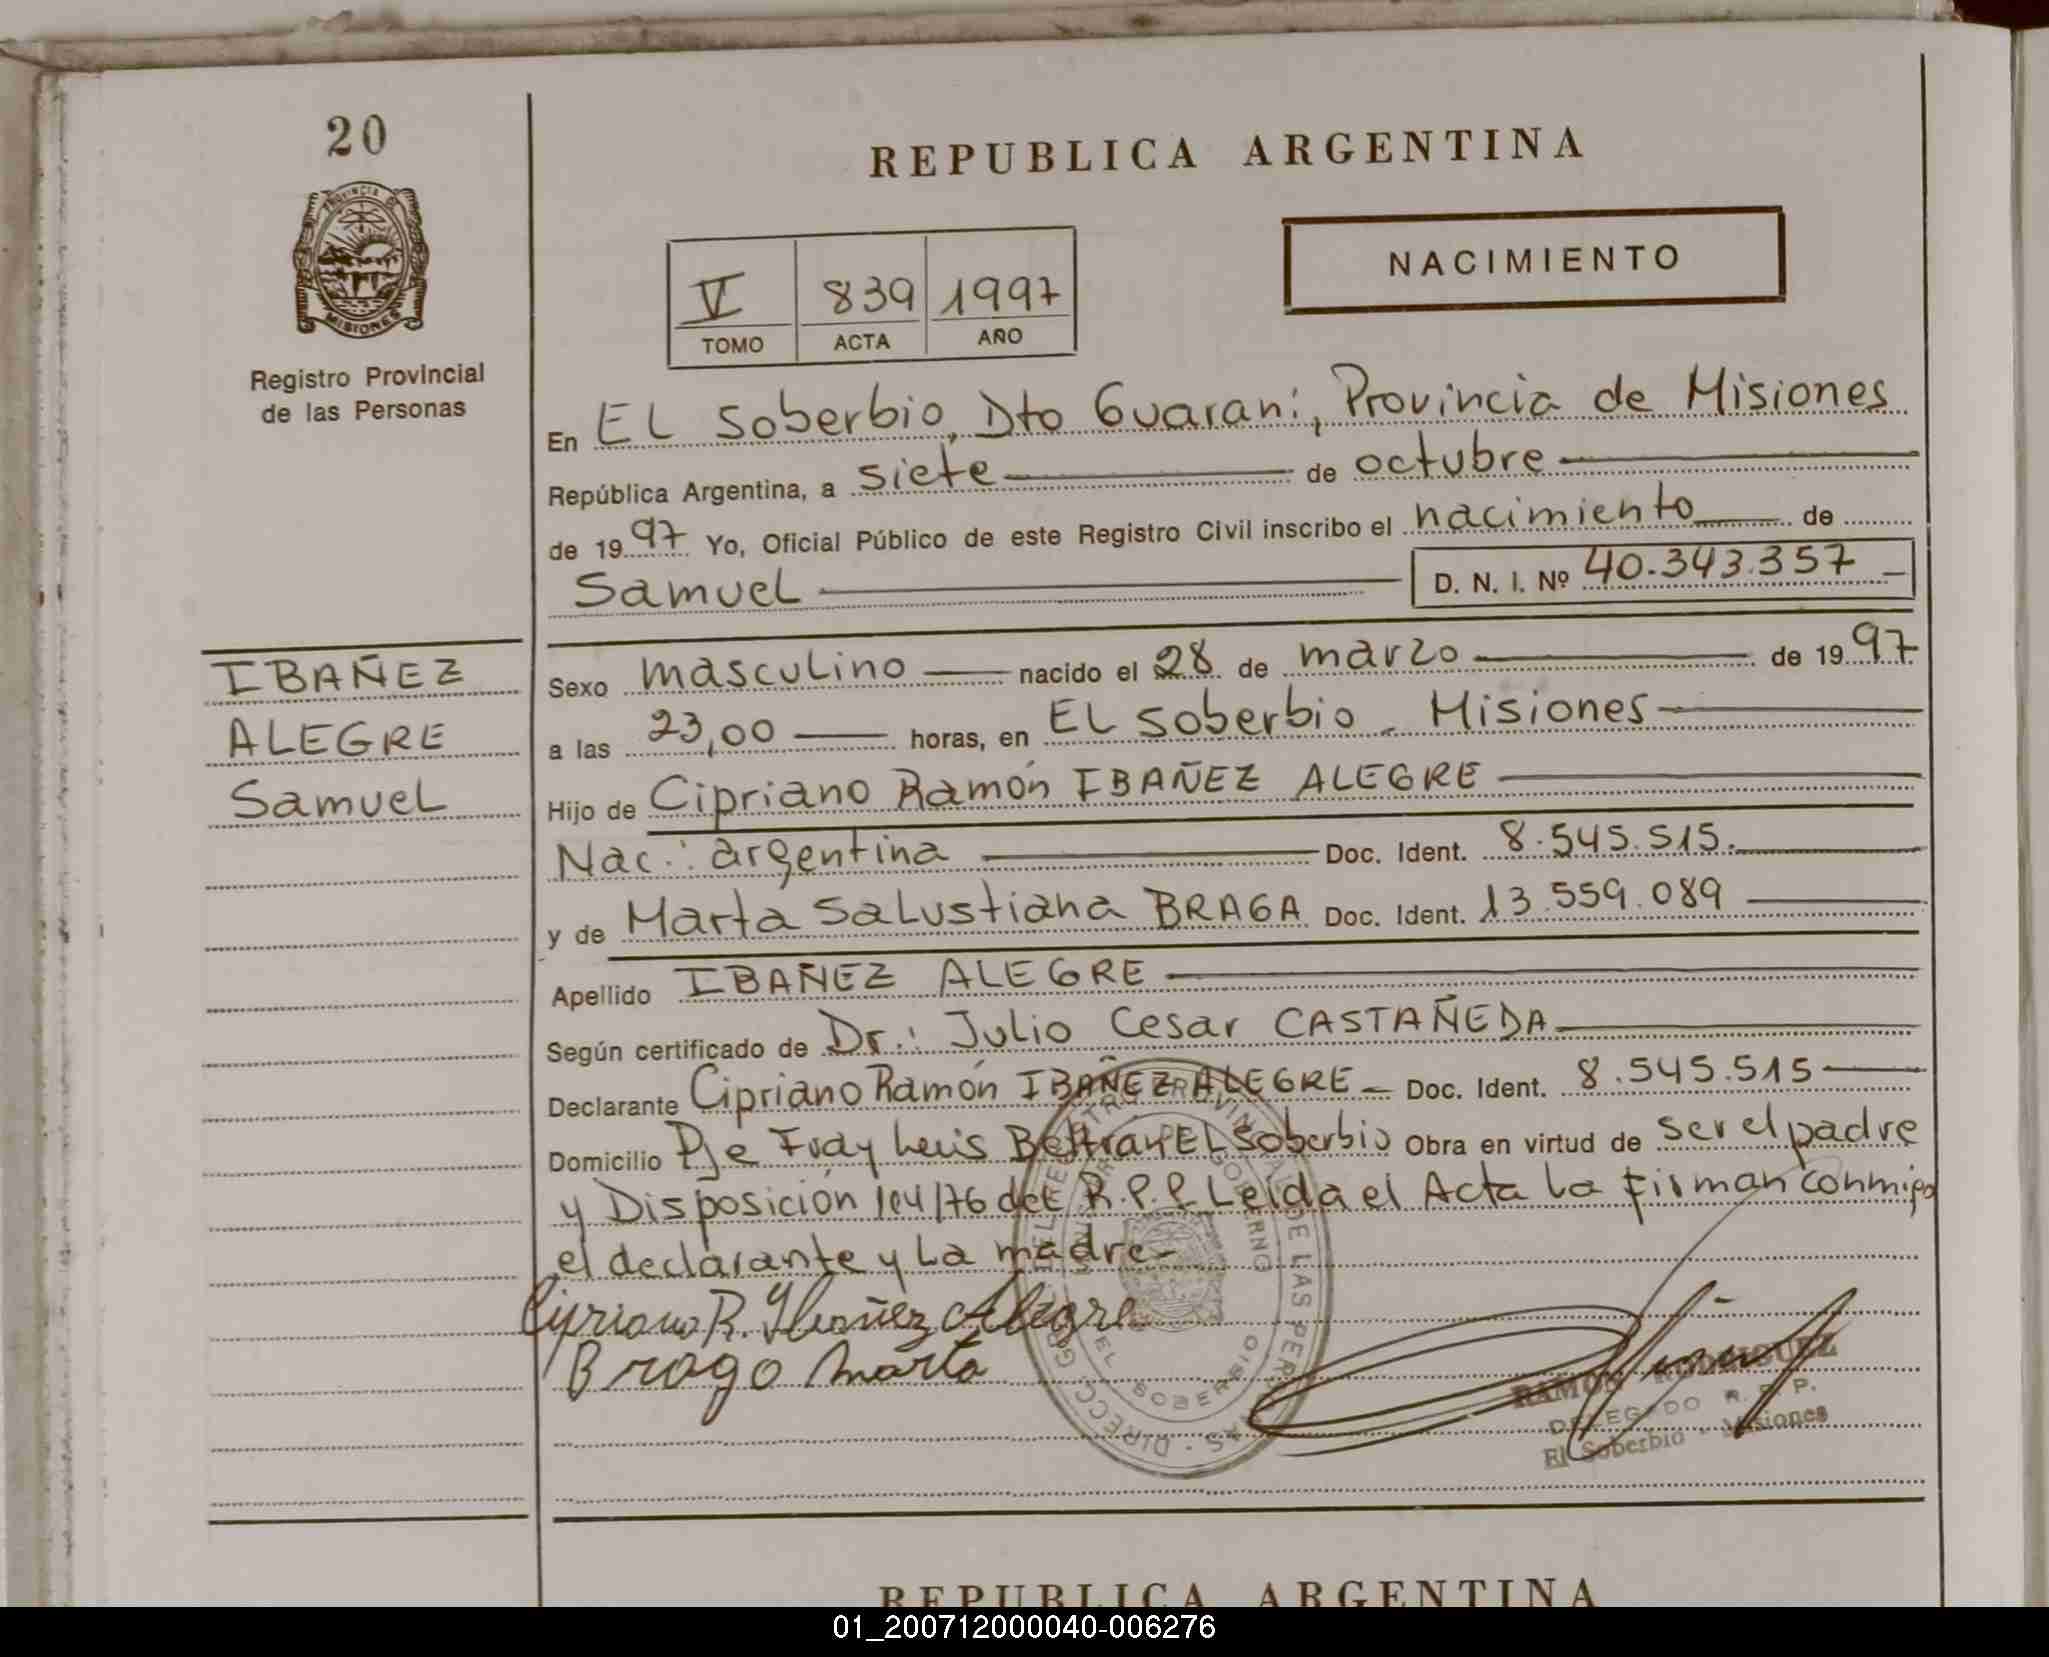 20
REPUBLICA ARGENTINA
PROVINCIA DE
MISIONES
NACIMIENTO
V 839 1997
TOMO ACTA AÑO
Registro Provincial
de las Personas
En EL Soberbio, Dto Guaraní, Provincia de Misiones
República Argentina, a siete de octubre
de 1997 Yo, Oficial Público de este Registro Civil inscribo el nacimiento de
Samuel D. N. I. Nº 40.343.357
IBAÑEZ
ALEGRE
Samuel
Sexo masculino nacido el 28 de marzo de 1997
a las 23,00 horas, en EL Soberbio - Misiones
Hijo de Cipriano Ramón IBAÑEZ ALEGRE
Nac.: argentina Doc. Ident. 8.545.515.
y de Marta Salustiana BRAGA Doc. Ident. 13.559.089
Apellido IBAÑEZ ALEGRE
Según certificado de Dr.: Julio Cesar CASTAÑEDA
Declarante Cipriano Ramón IBAÑEZ ALEGRE - Doc. Ident. 8.545.515
Domicilio Pje Fray Luis Beltran EL Soberbio Obra en virtud de ser el padre
y Disposición 104/76 del R.P.P. Leída el Acta la firman conmigo
el declarante y La madre-
Cipriano R. Ibañez Alegre
Braga Marta
EL SOBERBIO
RAMON RODRIGUEZ
DELEGADO R. P. P.
El Soberbio - Misiones
REPUBLICA ARGENTINA
01_200712000040-006276